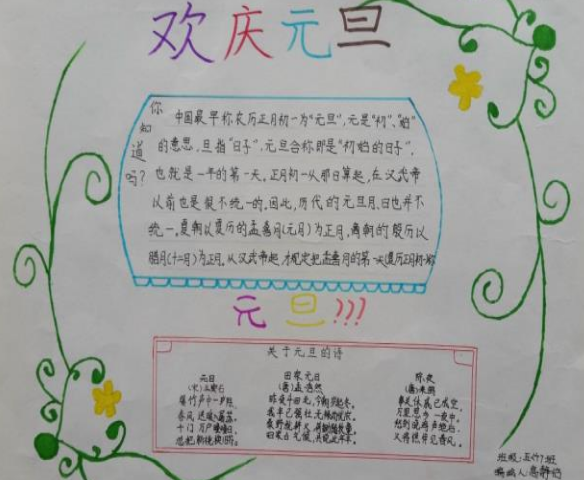 欢庆元旦
你知道吗?
中国最早称农历正月初一为"元旦",元是"初"、"始"
的意思,旦指"日子",元旦合称即是"初始的日子",
也就是一年的第一天。正月初一从那日算起,在汉武帝
以前也是很不统一的。因此,历代的元旦月、日也并不
统一。夏朝以夏历的孟喜月(元月)为正月,商朝的殷历以
腊月(十二月)为正月。从汉武帝起,才规定把孟喜月的第一天
元旦???
关于元旦的诗
元日
(宋)王安石
爆竹声中一岁除,
春风送暖入屠苏。
千门万户曈曈日,
总把新桃换旧符。
田家元日
(唐)孟浩然
昨夜斗回北,今朝岁起东。
我年已强仕,无禄尚忧农。
除夜
(唐)来鹄
事关休戚已成空,
万里思 一夜中。
愁到晓鸡声绝后,
又将憔悴见春风。
班级:五(7)班
编辑人: